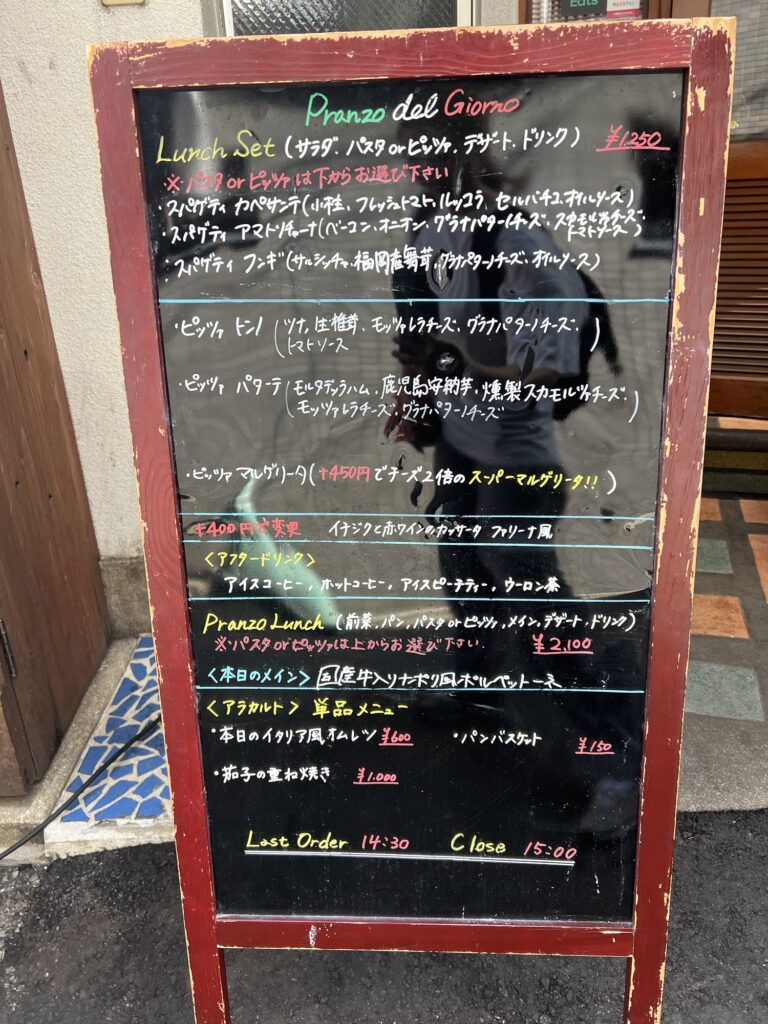 Eats
Pranzo del Giorno
Lunch Set (サラダ、パスタorピッツァ、デザート、ドリンク) ¥1250
※パスタorピッツァは下からお選び下さい
・スパゲティ カペサンテ(小柱、フレッシュトマト、ルッコラ、セルバチコ、オイルソース)
・スパゲティ アマトリチャーナ(ベーコン、オニオン、グラナパダーノチーズ、スカモルツァチーズ、
トマトソース)
・スパゲティ フンギ(サルシッチャ、福岡産舞茸、グラナパダーノチーズ、オイルソース)
・ピッツァ トンノ(ツナ、生椎茸、モッツァレラチーズ、グラナパダーノチーズ、
トマトソース)
・ピッツァ パターテ(モルタデッラハム、鹿児島安納芋、燻製スカモルツァチーズ、
モッツァレラチーズ、グラナパダーノチーズ)
・ピッツァ マルゲリータ(+450円でチーズ2倍のスーパーマルゲリータ!!)
+400円で変更 イチジクと赤ワインのカッサータ ファリーナ風
<アフタードリンク>
アイスコーヒー, ホットコーヒー, アイスピーチティー, ウーロン茶
Pranzo Lunch (前菜、パン、パスタorピッツァ、メイン、デザート、ドリンク)
※パスタorピッツァは上からお選び下さい ¥2,100
<本日のメイン> 国産牛入りナポリ風ポルペットーネ
<アラカルト> 単品メニュー
・本日のイタリア風オムレツ ¥600 ・パンバスケット ¥150
・茄子の重ね焼き ¥1.000
Last Order 14:30 Close 15:00